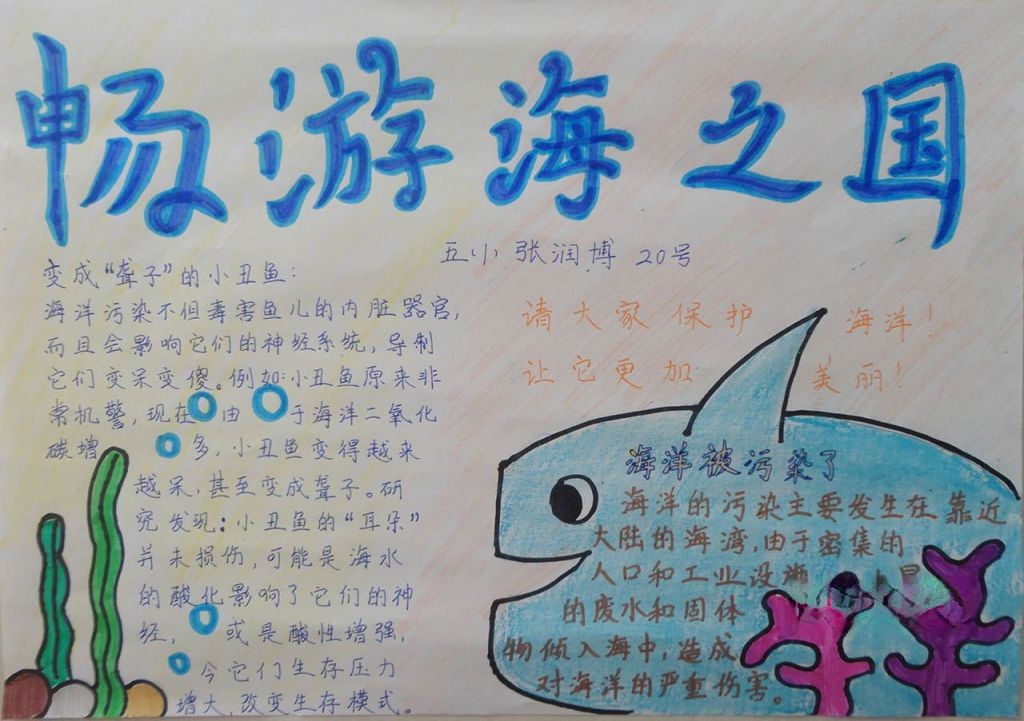 畅游海之国
五小 张润博 20号
变成“聋子”的小丑鱼：
海洋污染不但毒害鱼儿的内脏器官，
而且会影响它们的神经系统，导制
它们变呆变傻。例如：小丑鱼原来非
常机警，现在由于海洋二氧化
碳增多，小丑鱼变得越来
越呆，甚至变成聋子。研
究发现：小丑鱼的“耳朵”
并未损伤，可能是海水
的酸化影响了它们的神
经，或是酸性增强，
今它们生存压力
增大，改变生存模式。
请大家保护海洋！
让它更加美丽！
海洋被污染了
海洋的污染主要发生在靠近
大陆的海湾，由于密集的
人口和工业设
的废水和固体
物倾入海中，造成
对海洋的严重伤害。